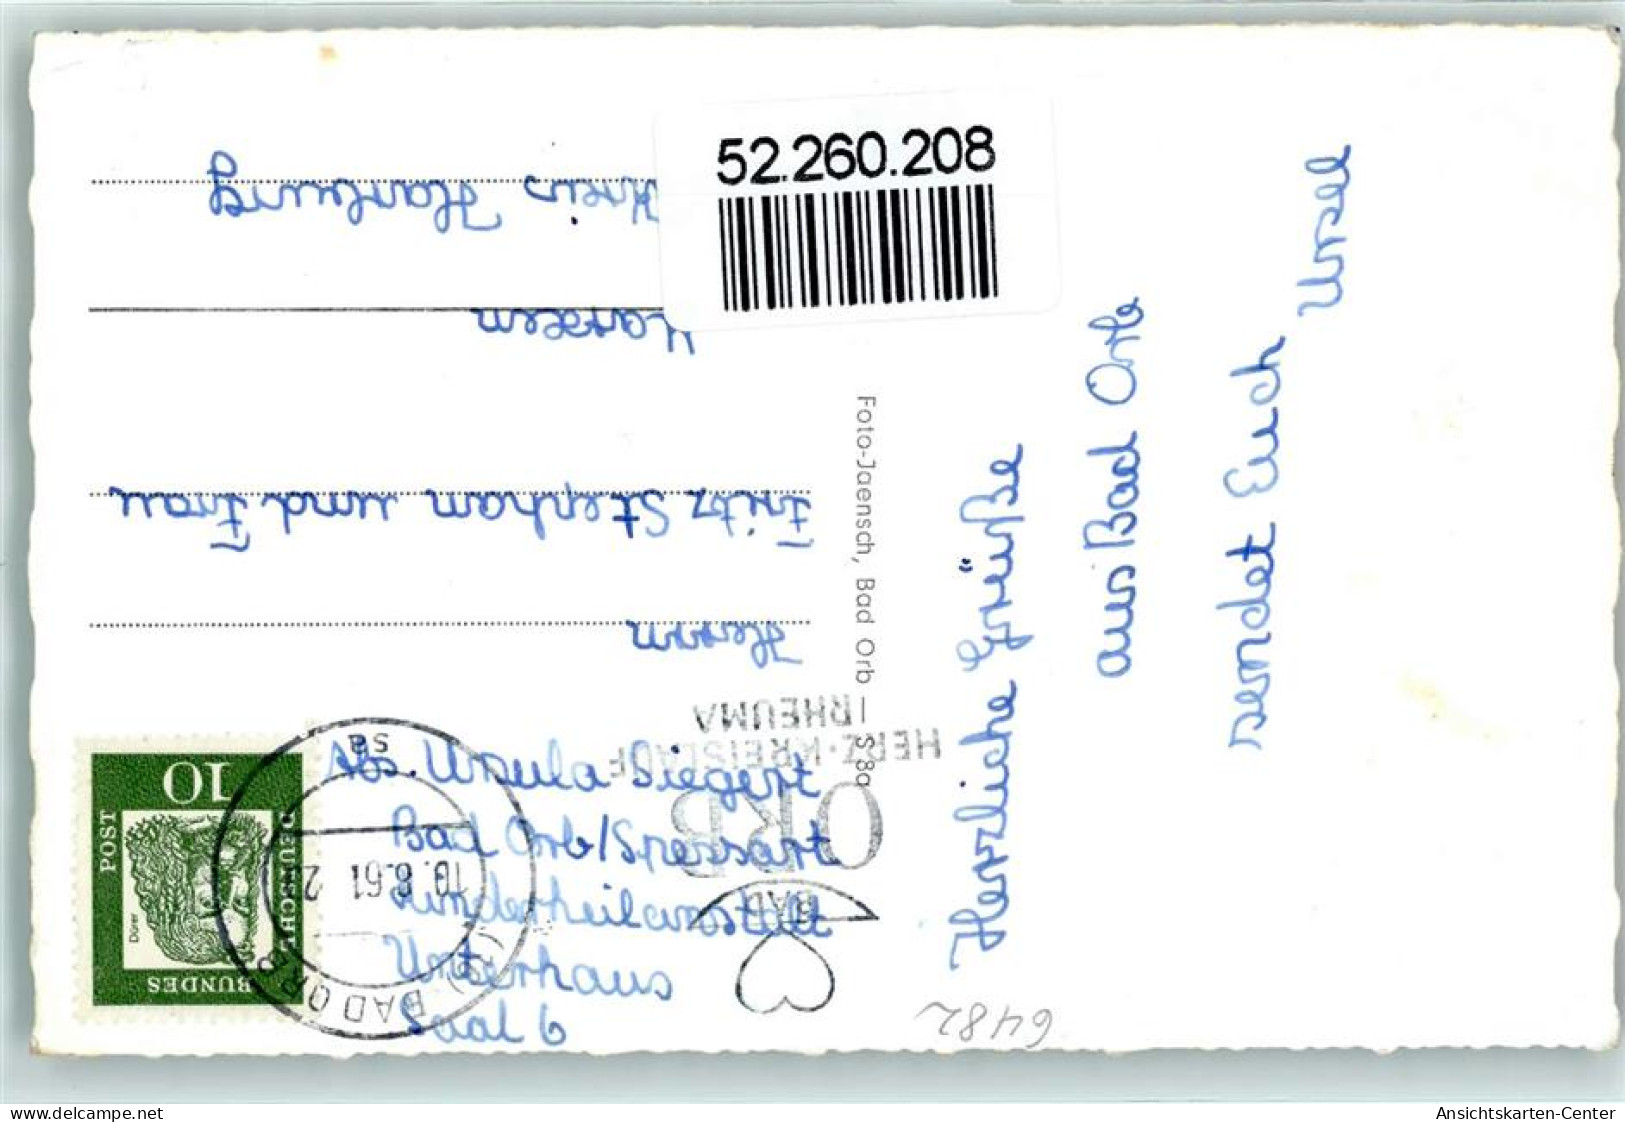 52.260.208
Herzliche Grüße
aus Bad Orb
sendet Euch
Ursel
Foto-Jaensch, Bad Orb
S 8a
Herrn
Fritz Stephan und Frau
Marxen
Kreis Harburg
Abs. Ursula Siegert
Bad Orb/Spessart
Kinderheilanstalt
Unterhaus
Saal 6
BAD
ORB
HERZ·KREISLAUF
RHEUMA
BAD ORB
10.8.61
sa
DEUTSCHE
BUNDES
POST
10
Dürer
6482
www.delcampe.net
Ansichtskarten-Center